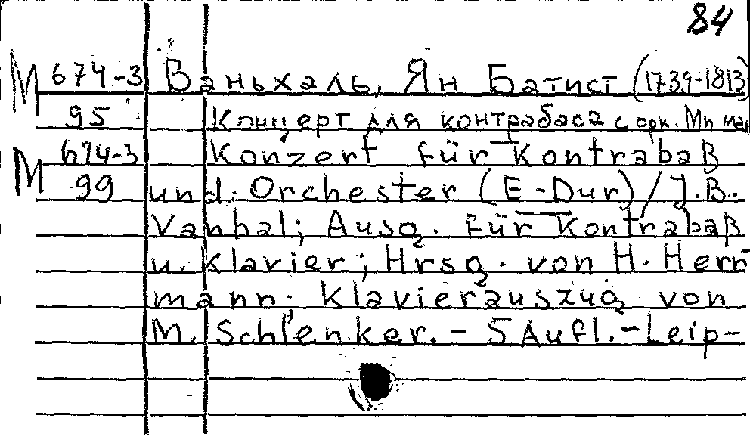 84
М 674-3 Ваньхаль, Ян Батист (1739-1813)
95 Концерт для контрабаса с орк. Ми маж
М 674-3 Konzert für Kontrabaß
99 und Orchester (E-Dur) / J.B.
Vanhal; Ausg. für Kontrabaß
u. Klavier; Hrsg. von H. Herr
mann; Klavierauszug von
M. Schlenker. - 5 Aufl. - Leip-